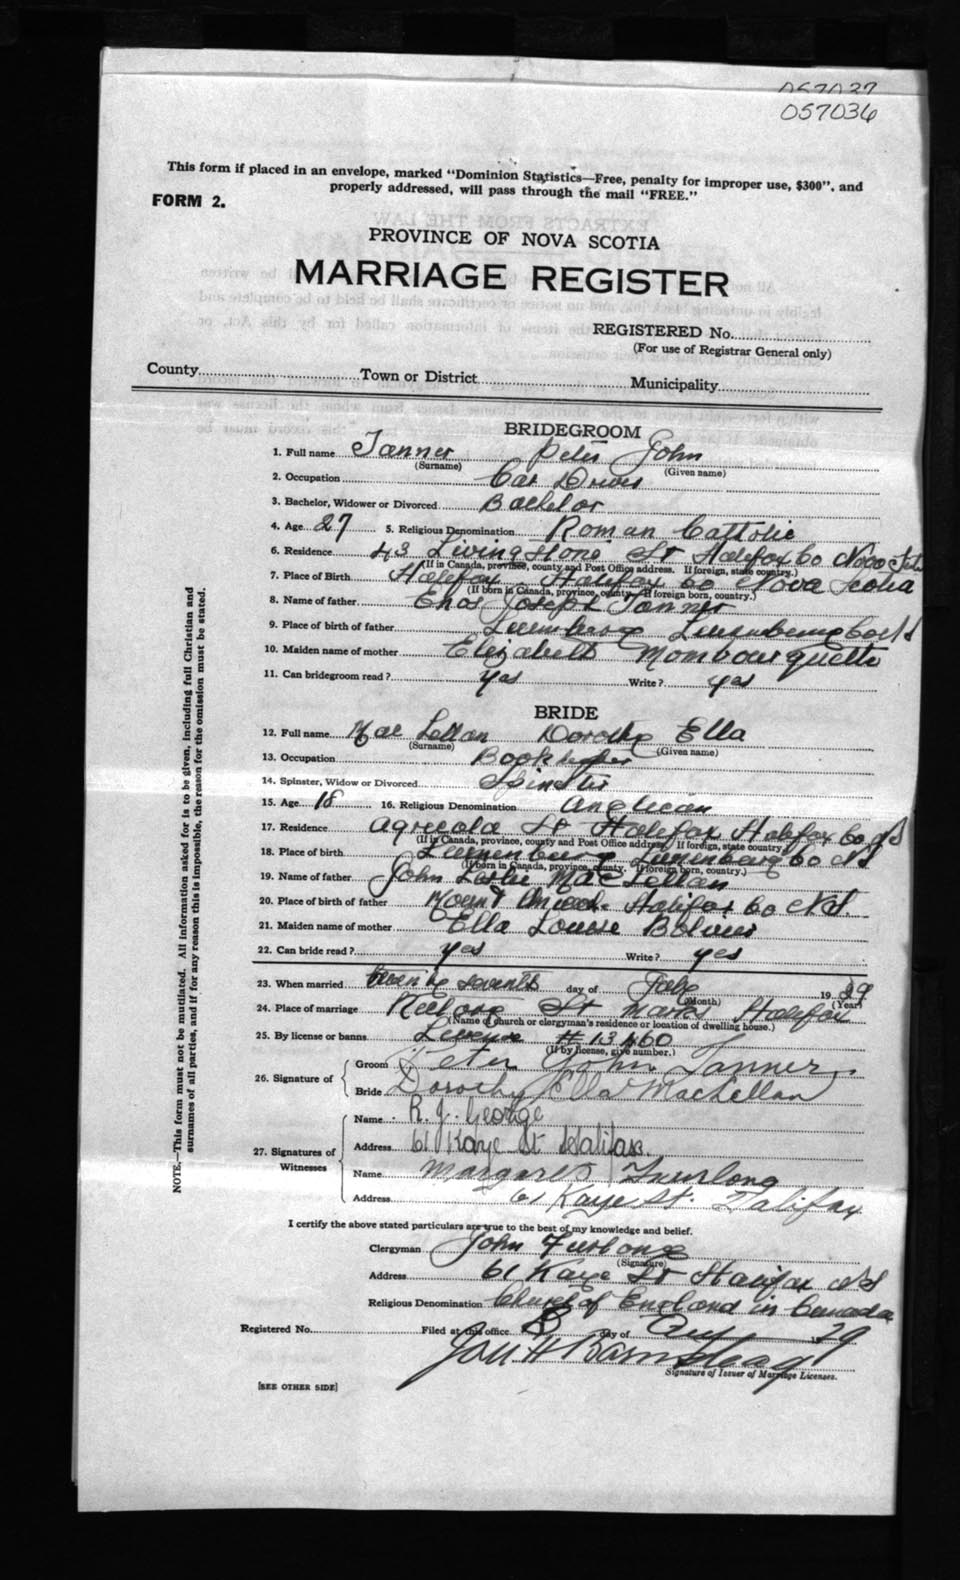 057037
057036
This form if placed in an envelope, marked "Dominion Statistics—Free, penalty for improper use, $300", and
properly addressed, will pass through the mail "FREE."
FORM 2.
PROVINCE OF NOVA SCOTIA
MARRIAGE REGISTER
REGISTERED No.
(For use of Registrar General only)
County Town or District Municipality
BRIDEGROOM
1. Full name Tanner Peter John
(Surname) (Given name)
2. Occupation Car Driver
3. Bachelor, Widower or Divorced Bachelor
4. Age 27 5. Religious Denomination Roman Catholic
6. Residence 43 Livingstone St Halifax Co Nova
(If in Canada, province, county and Post Office address. If foreign, state country.)
7. Place of Birth Halifax Halifax Co Nova Scotia
(If born in Canada, province, county. If foreign born, country.)
8. Name of father Enos Joseph Tanner
9. Place of birth of father Lunenburg Lunenburg Co N S
10. Maiden name of mother Elizabeth Mombourquette
11. Can bridegroom read? yes Write? yes
BRIDE
12. Full name Mac Lellan Dorothy Ella
(Surname) (Given name)
13. Occupation Bookkeeper
14. Spinster, Widow or Divorced Spinster
15. Age 18 16. Religious Denomination Anglican
17. Residence Agricola St Halifax Halifax Co N S
(If in Canada, province, county and Post Office address. If foreign, state country.)
18. Place of birth Lunenburg Lunenburg Co N S
(If born in Canada, province, county. If foreign born, country.)
19. Name of father John Leslie MacLellan
20. Place of birth of father Mount Halifax Co N.S.
21. Maiden name of mother Ella Louise
22. Can bride read? yes Write? yes
23. When married seventh day of 19 29
(Month) (Year)
24. Place of marriage Rectory St Marks Halifax
(Name of church or clergyman's residence or location of dwelling house.)
25. By license or banns # 13460
(If by license, give number.)
26. Signature of
Groom Peter John Tanner
Bride Dorothy Ella MacLellan
27. Signatures of Witnesses
Name R. J. George
Address 61 Kaye St Halifax.
Name Margaret Furlong
Address 61 Kaye St. Halifax
I certify the above stated particulars are true to the best of my knowledge and belief.
Clergyman John Furlong
(Signature)
Address 61 Kaye St Halifax N S
Religious Denomination Church of England in Canada
Registered No. Filed at this office 8 day of 19 29
Signature of Issuer of Marriage Licenses.
[SEE OTHER SIDE]
NOTE.—This form must not be mutilated. All information asked for is to be given, including full Christian and
surnames of all parties, and if for any reason this is impossible, the reason for the omission must be stated.